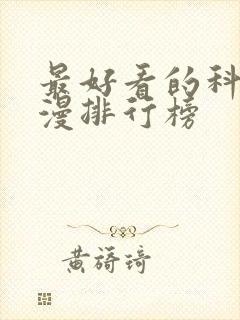 最好看的科
漫排行榜
黄䈎琦